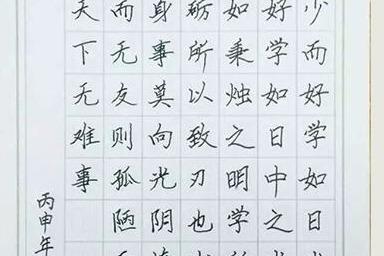 少而好学如日
好学如日中之
如秉烛之明学
砺所以致刃也
身事莫向光阴
而无友则孤陋
天下无难事
丙申年